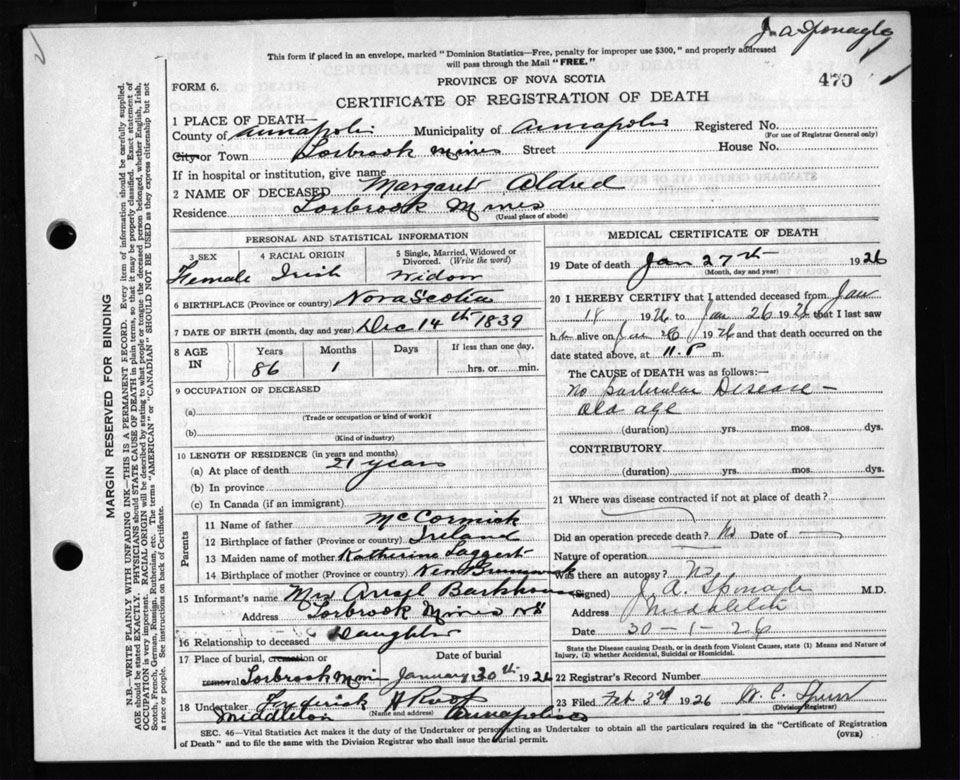 J. A. Sponagle
This form if placed in an envelope, marked "Dominion Statistics—Free, penalty for improper use $300," and properly addressed
will pass through the Mail "FREE."
PROVINCE OF NOVA SCOTIA
470
FORM 6.
CERTIFICATE OF REGISTRATION OF DEATH
1 PLACE OF DEATH—
County of Annapolis Municipality of Annapolis Registered No.
(For use of Registrar General only)
City or Town Torbrook Mines Street House No.
If in hospital or institution, give name
2 NAME OF DECEASED Margaret Aldred
Residence Torbrook Mines
(Usual place of abode)
PERSONAL AND STATISTICAL INFORMATION
3 SEX 4 RACIAL ORIGIN 5 Single, Married, Widowed or Divorced. (Write the word)
Female Irish Widow
6 BIRTHPLACE (Province or country) Nova Scotia
7 DATE OF BIRTH (month, day and year) Dec 14th 1839
8 AGE IN Years Months Days If less than one day,
86 1 hrs. or min.
9 OCCUPATION OF DECEASED
(a)
(Trade or occupation or kind of work)
(b)
(Kind of industry)
10 LENGTH OF RESIDENCE (in years and months)
(a) At place of death 21 years
(b) In province
(c) In Canada (if an immigrant)
Parents
11 Name of father McCormick
12 Birthplace of father (Province or country) Ireland
13 Maiden name of mother Katherine Taggert
14 Birthplace of mother (Province or country) New Brunswick
15 Informant's name Mrs Ansel Barkhouse
Address Torbrook Mines NS
16 Relationship to deceased Daughter
17 Place of burial, cremation or removal Date of burial
Torbrook Mines January 30th 1926
18 Undertaker Frederick A Roop
(Name and address)
Middleton Annapolis Co
MEDICAL CERTIFICATE OF DEATH
19 Date of death Jan 27th 1926
(Month, day and year)
20 I HEREBY CERTIFY that I attended deceased from Jan
18 1926 to Jan 26 1926 that I last saw
h alive on Jan 26 1926 and that death occurred on the
date stated above, at 11. P m.
The CAUSE of DEATH was as follows:—
No particular Disease —
old age
(duration) yrs. mos. dys.
CONTRIBUTORY
(duration) yrs. mos. dys.
21 Where was disease contracted if not at place of death?
Did an operation precede death? No Date of
Nature of operation
Was there an autopsy? No
(Signed) J. A. Sponagle M.D.
Address Middleton
Date 30-1-26
State the Disease causing Death, or in death from Violent Causes, state (1) Means and Nature of
Injury, (2) whether Accidental, Suicidal or Homicidal.
22 Registrar's Record Number
23 Filed Feb 3rd 1926 W. C. Spurr
(Division Registrar)
SEC. 46—Vital Statistics Act makes it the duty of the Undertaker or person acting as Undertaker to obtain all the particulars required in the "Certificate of Registration
of Death" and to file the same with the Division Registrar who shall issue the burial permit.
(OVER)
MARGIN RESERVED FOR BINDING
N.B.—WRITE PLAINLY WITH UNFADING INK—THIS IS A PERMANENT RECORD. Every item of information should be carefully supplied.
AGE should be stated EXACTLY. PHYSICIANS should STATE CAUSE OF DEATH in plain terms, so that it may be properly classified. Exact statement of
OCCUPATION is very important. RACIAL ORIGIN will be described by stating to what people or tongue the deceased person belonged, whether English, Irish,
Scotch, French, German, Russian, Ruthenian, etc. The terms "AMERICAN" or "CANADIAN" SHOULD NOT BE USED as they express citizenship but not
a race or people. See instructions on back of Certificate.